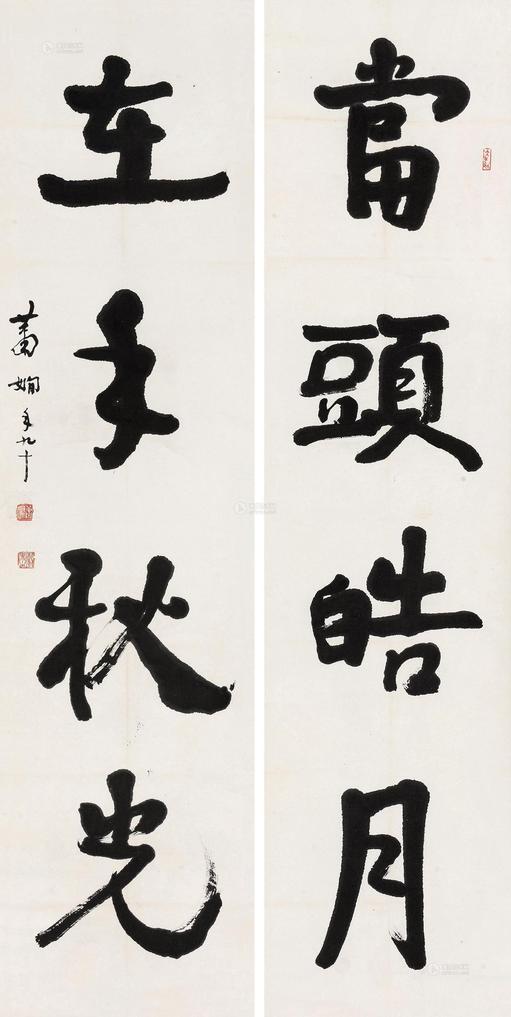 當頭皓月
在手秋光
蕭嫻年九十